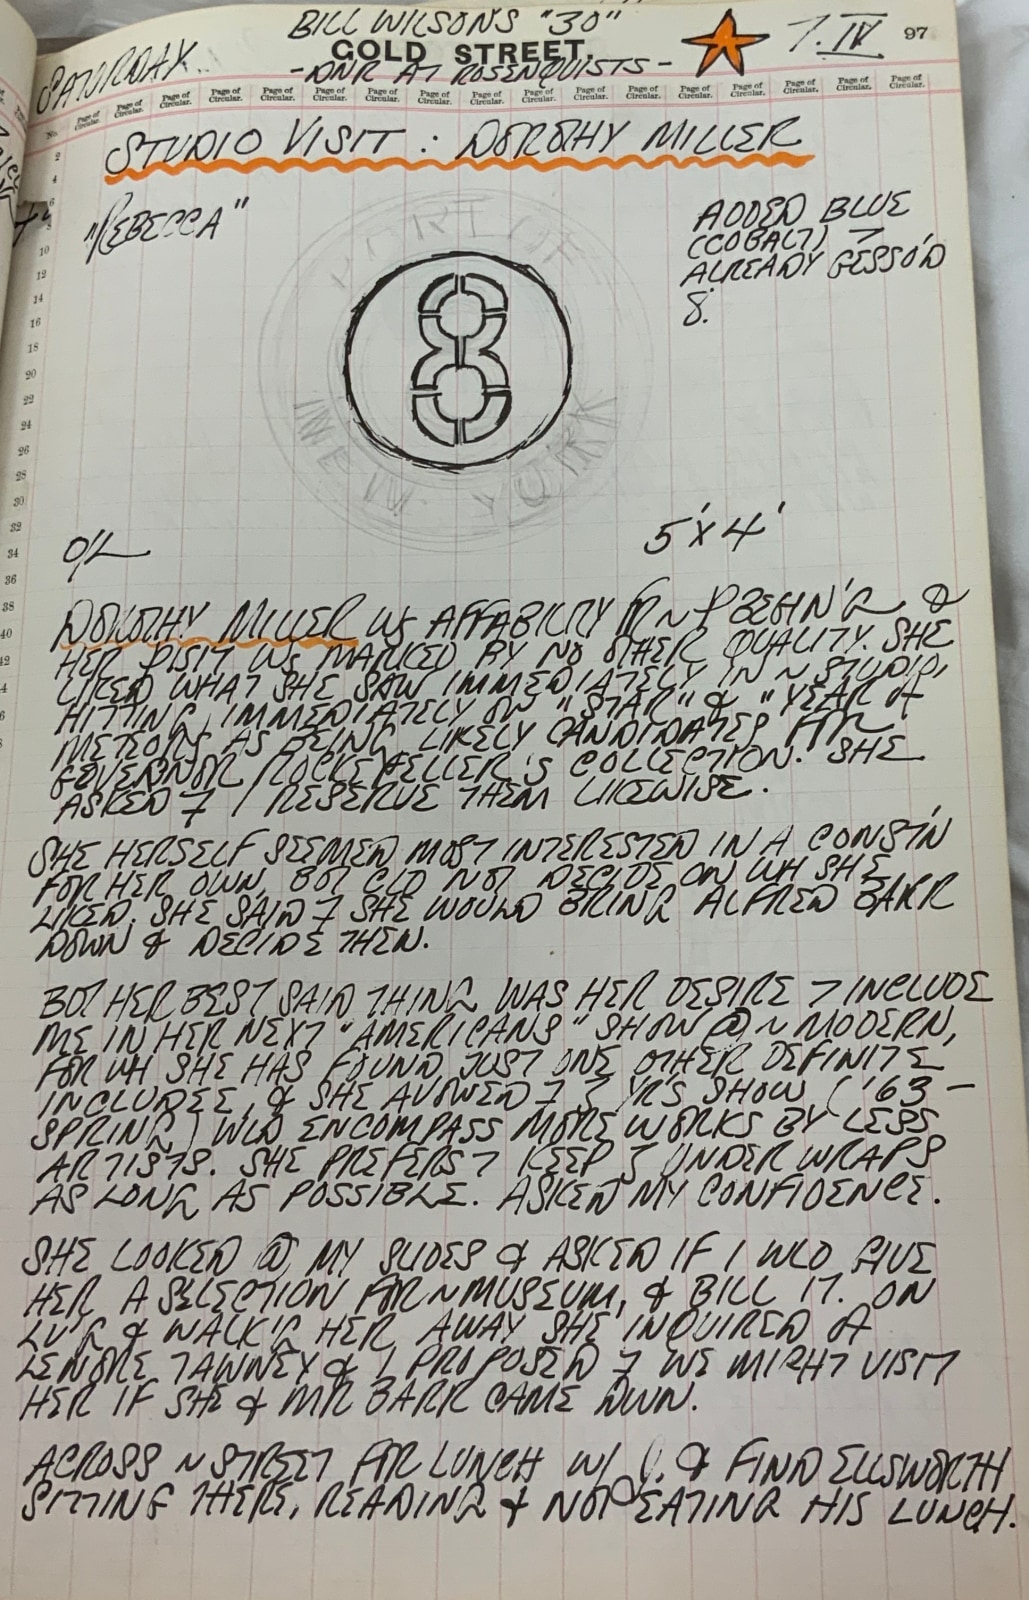 BILL WILSON'S "30"
SATURDAY. GOLD STREET. 7.IV 97
- DNR AT ROSENQUISTS -
Page of Circular. Page of Circular. Page of Circular. Page of Circular. Page of Circular. Page of Circular. Page of Circular. Page of Circular. Page of Circular. Page of Circular. Page of Circular. Page of Circular. Page of Circular. Page of Circular. Page of Circular. Page of Circular.
No.
STUDIO VISIT : DOROTHY MILLER
"REBECCA"
ADDED BLUE
(COBALT)
ALREADY GESSO'D
8.
PORT OF
8
NEW YORK
O/L 5' X 4'
DOROTHY MILLER WS AFFABILITY FR BEGIN'G &
HER VISIT WS MARKED BY NO OTHER QUALITY. SHE
LIKED WHAT SHE SAW IMMEDIATELY IN STUDIO,
HITTING IMMEDIATELY ON "STAR" & "YEAR OF
METEORS AS BEING LIKELY CANDIDATES FOR
GOVERNOR ROCKEFELLER'S COLLECTION. SHE
ASKED I RESERVE THEM LIKEWISE.
SHE HERSELF SEEMED MOST INTERESTED IN A CONST'N
FOR HER OWN, BUT CLD NOT DECIDE ON WH SHE
LIKED. SHE SAID SHE WOULD BRING ALFRED BARR
DOWN & DECIDE THEN.
BUT HER BEST SAID THING WAS HER DESIRE INCLUDE
ME IN HER NEXT "AMERICANS" SHOW @ MODERN,
FOR WH SHE HAS FOUND JUST ONE OTHER DEFINITE
INCLUDEE, & SHE AVOWED YR'S SHOW ('63 -
SPRING) WLD ENCOMPASS MORE WORKS BY LESS
ARTISTS. SHE PREFERS KEEP UNDER WRAPS
AS LONG AS POSSIBLE. ASKED MY CONFIDENCE.
SHE LOOKED @ MY SLIDES & ASKED IF I WLD GIVE
HER A SELECTION FOR MUSEUM, & BILL IT. ON
LV'G & WALK'G HER AWAY SHE INQUIRED OF
LENORE TAWNEY & I PROPOSED WE MIGHT VISIT
HER IF SHE & MR BARR CAME DWN.
ACROSS STREET FOR LUNCH W/ J. & FIND ELLSWORTH
SITTING THERE, READING & NOT EATING HIS LUNCH.